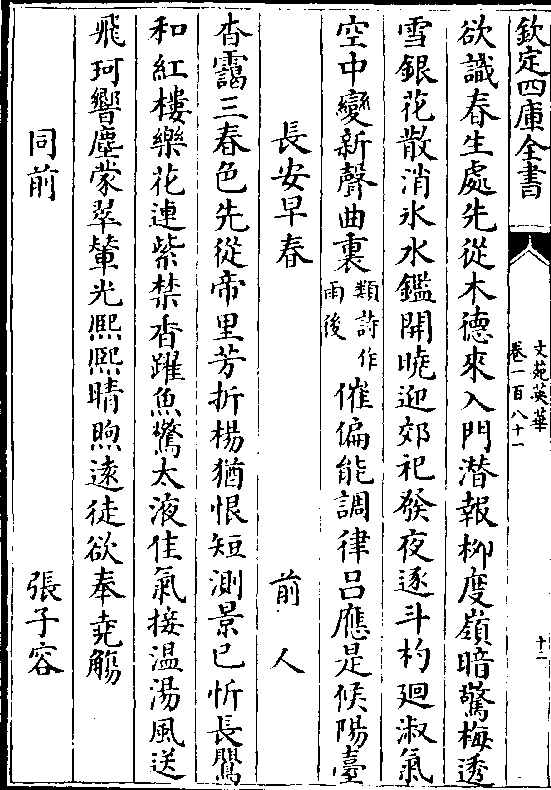 欽定四庫全書
文苑英華
卷一百八十一
十一
欲識春生處先從木德來入門潛報栁度嶺暗驚梅透
雪銀花散消氷水鑑開曉迎郊祀發夜逐斗杓廻淑氣
空中變新聲曲裏類詩作雨後催偏能調律吕應是候陽臺
長安早春 前人
杳靄三春色先從帝里芳折楊猶恨短測景已忻長鸎
和紅樓樂花連紫禁香躍魚驚太液佳氣接温湯風送
飛珂響塵蒙翠輦光熙熙晴煦逺徒欲奉堯觴
同前 張子容